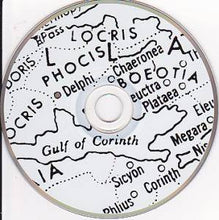 Pass
LOCRIS
L L A
PHOCIS
DORIS
Delphi
Chaeronea
Thebes
BOEOTIA
Plataea
OCRIS
Megara
Gulf of Corinth
IA
Sicyon
Corinth
Phlius